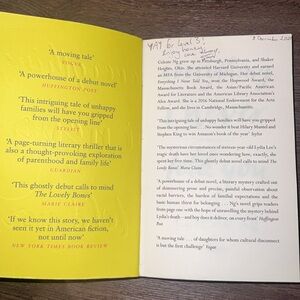 'A moving tale'
VOGUE
'A powerhouse of a debut novel'
HUFFINGTON POST
'This intriguing tale of unhappy
families will have you gripped
from the opening line'
STYLIST
'A page-turning literary thriller that is
also a thought-provoking exploration
of parenthood and family life'
GUARDIAN
'This ghostly debut calls to mind
The Lovely Bones'
MARIE CLAIRE
'If we know this story, we haven't
seen it yet in American fiction,
not until now'
NEW YORK TIMES BOOK REVIEW
YAY for level 5!
Celeste Ng grew up in Pittsburgh, Pennsylvania, and Shaker
Heights, Ohio. She attended Harvard University and earned
an MFA from the University of Michigan. Her debut novel,
Everything I Never Told You, won the Hopwood Award, the
Massachusetts Book Award, the Asian/Pacific American
Award for Literature and the American Library Association's
Alex Award. She is a 2016 National Endowment for the Arts
Fellow, and she lives in Cambridge, Massachusetts.
'This intriguing tale of unhappy families will have you gripped
from the opening line . . . No wonder it beat Hilary Mantel and
Stephen King to win Amazon's book of the year' Stylist
'The mysterious circumstances of sixteen-year-old Lydia Lee's
tragic death have her loved ones wondering how, exactly, she
spent her free time. This ghostly debut novel calls to mind The
Lovely Bones' Marie Claire
'A powerhouse of a debut novel, a literary mystery crafted out
of shimmering prose and precise, painful observation about
racial barriers, the burden of familial expectations and the
basic human thirst for belonging . . . Ng's novel grips readers
from page one with the hope of unravelling the mystery behind
Lydia's death – and boy does it deliver, on every front' Huffington
Post
'A moving tale . . . of daughters for whom cultural disconnect
is but the first challenge' Vogue